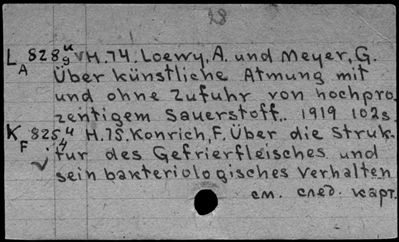 28
L A 828 и 9 √ H.74. Loewy, A. und Meyer, G.
Über künstliche Atmung mit
und ohne Zufuhr von hochpro
zentigem Sauerstoff.. 1919 102s.
K F 825 и 4 H.75. Konrich, F. Über die Struk-
tur des Gefrierfleisches und
sein bakteriologisches Verhalten
см. след. карт.